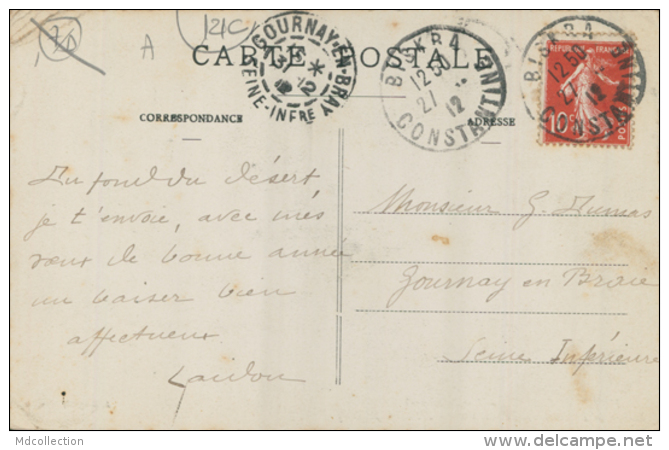 121C
A
CARTE POSTALE
GOURNAY-EN-BRAY
SEINE-INFRE
12
BISKRA
12 50
27
12
CONSTANTINE
BISKRA
12 50
27
12
CONSTANTINE
REPUBLIQUE FRANÇAISE
10c
POSTES
CORRESPONDANCE
ADRESSE
Du fond du désert,
je t'envoie, avec mes
vœux de bonne année
un baiser bien
affectueux
Monsieur G. Dumas
Gournay en Braie
Seine Inférieure
Mdcollection
delcampe.net